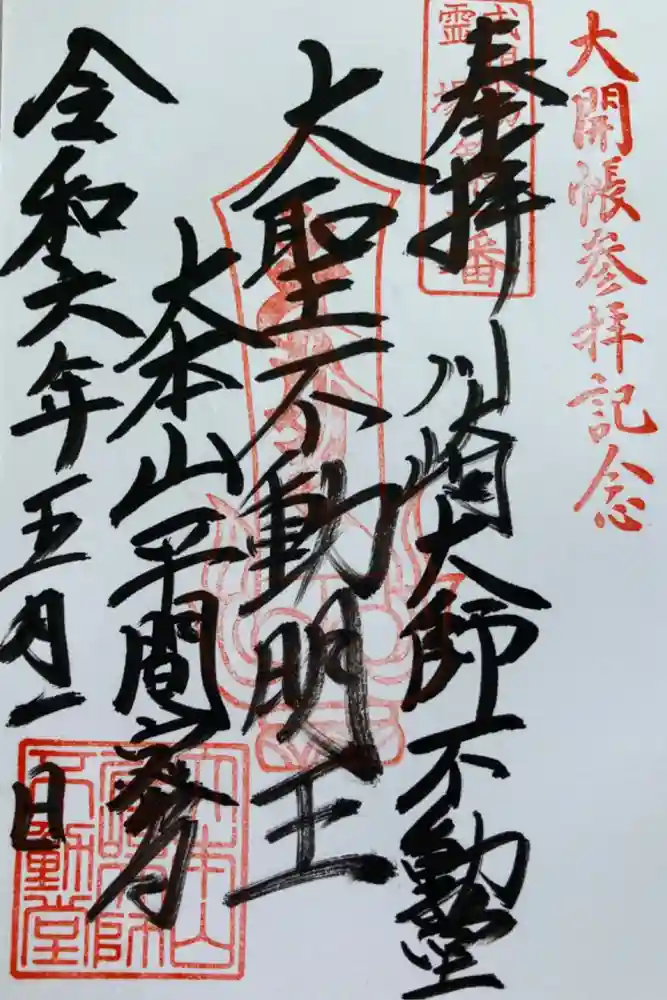 大開帳参拝記念
奉拝
川崎大師不動堂
大聖不動明王
大本山平間寺
令和六年五月一日
大本山
不動堂